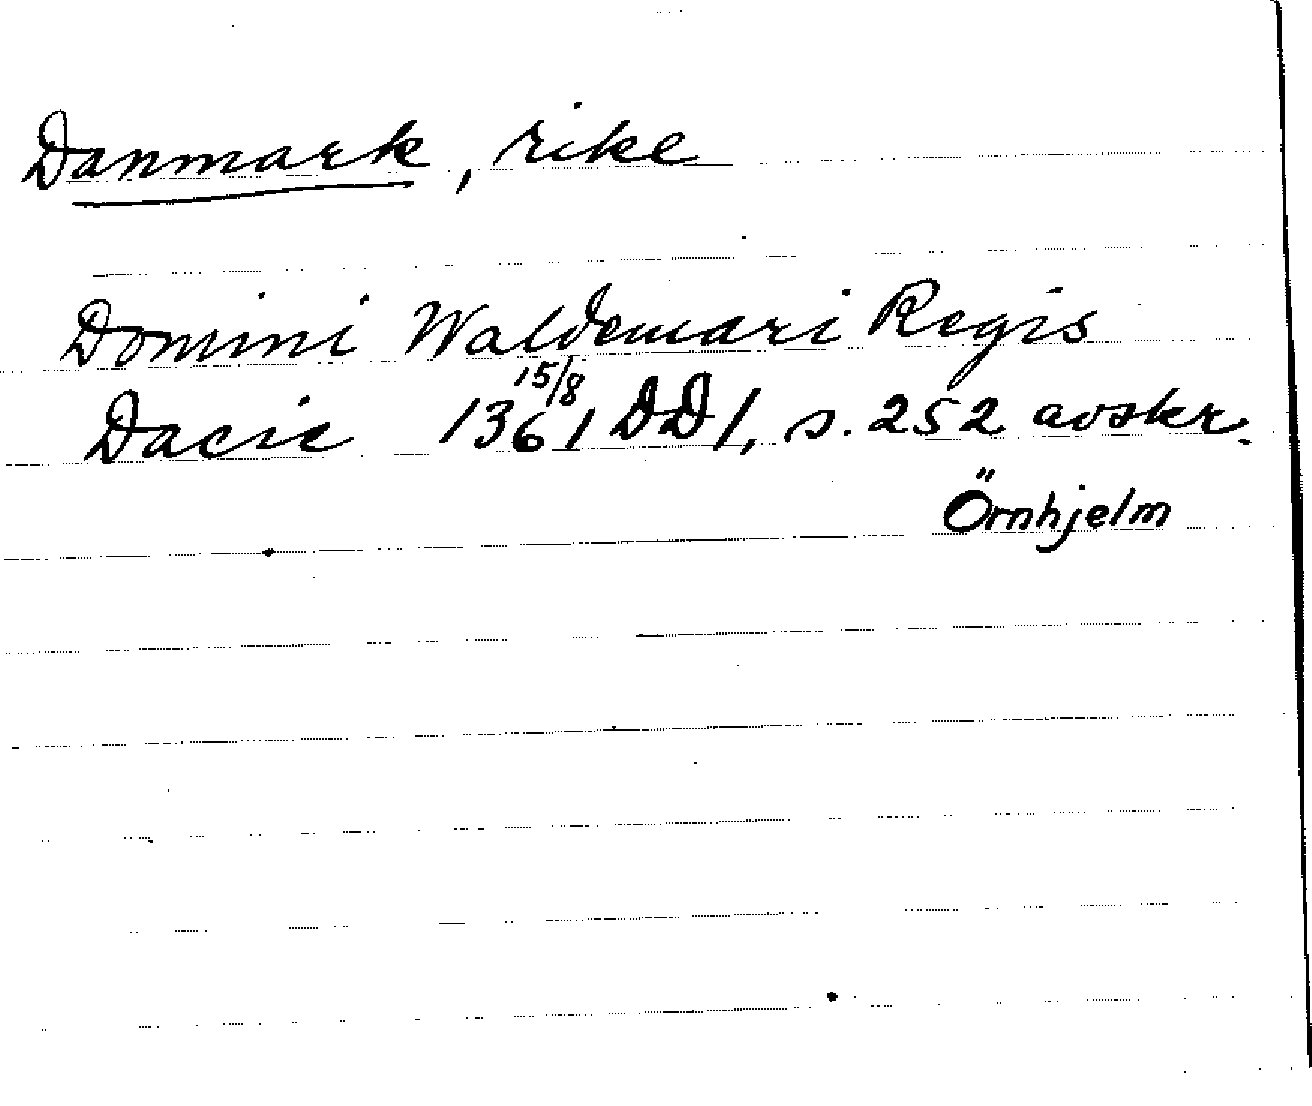 Danmark, rike
Domini Waldemari Regis
Dacie 1361 15/8 DD1, s. 252 avskr.
Örnhjelm